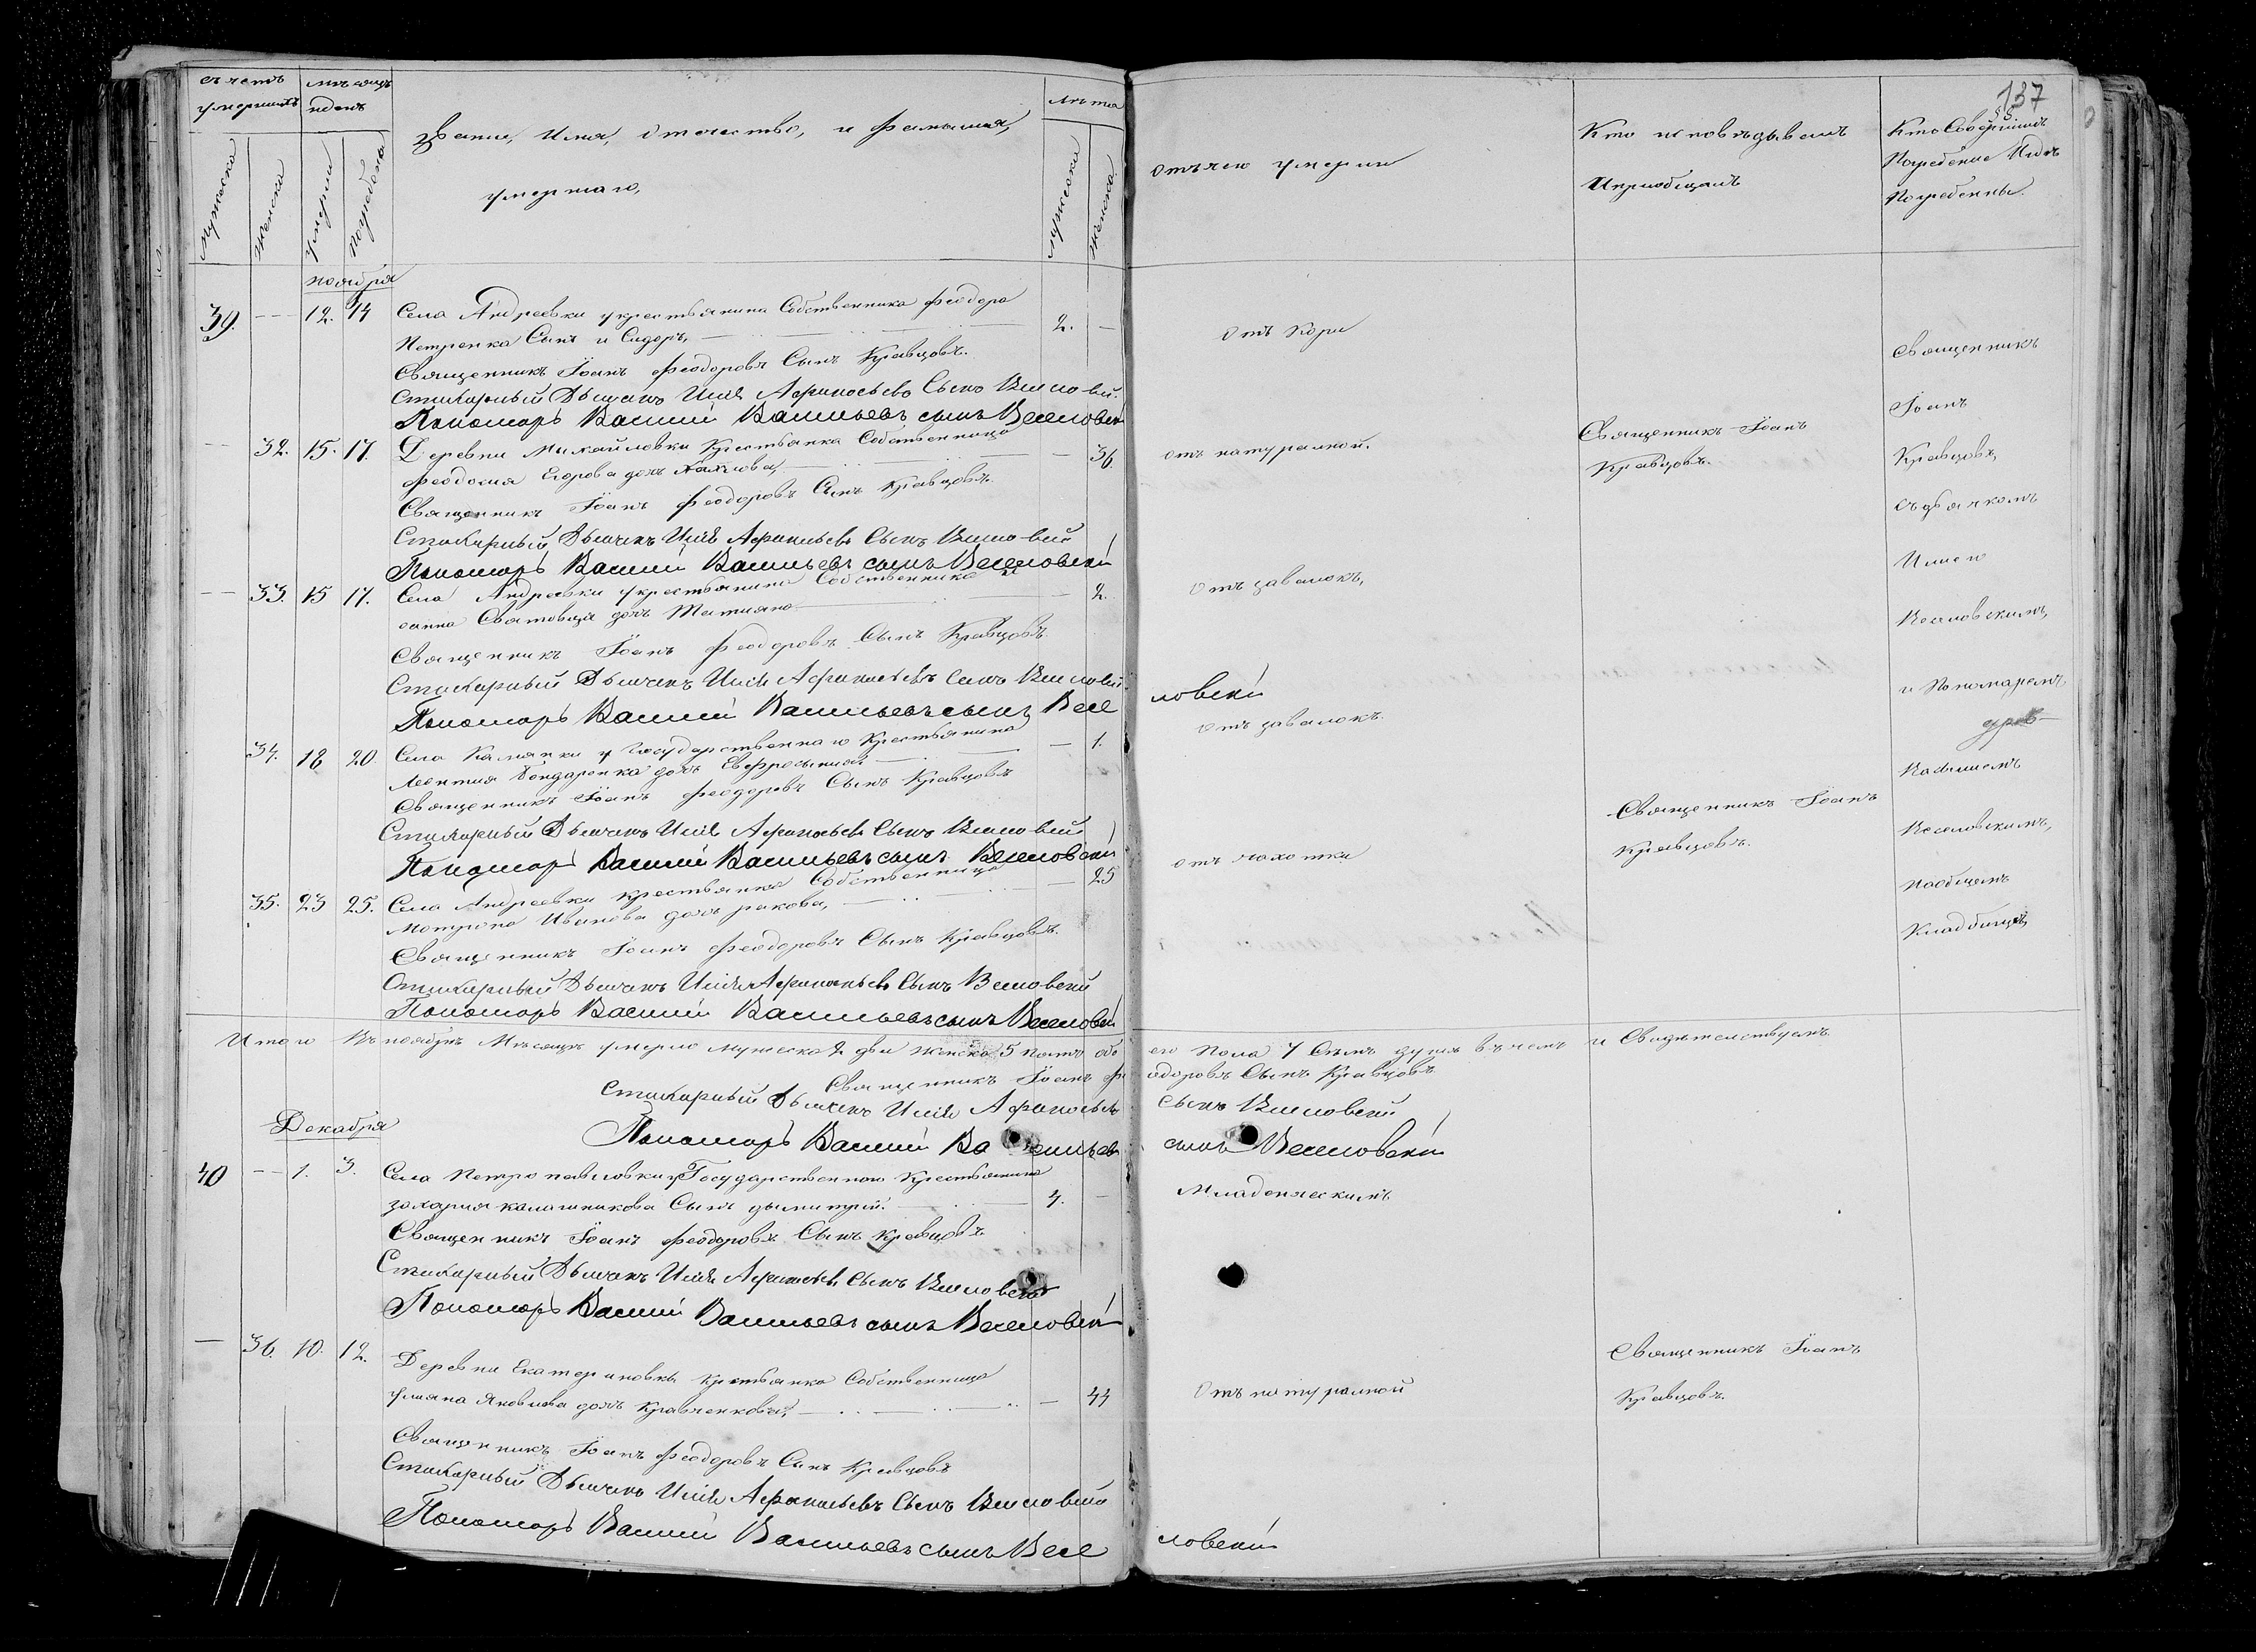 137
счетъ умершихъ
мѣсяцъ и день
Званіе, Имя, Отечество, и Фамилия, умершаго,
лѣта
Мужеска
Женска
Умерли
Погребены
мужеска
женска
отъ чего умерли
Кто исповѣдывалъ
И приобщалъ
Кто Совершилъ
Погребение И гдѣ
Погребенны.
ноября
39. — 12. 14 Села Андреевки у крестьянина Собственника Феодора
Петренка Сынъ Сидоръ, — 2. — отъ Кори
Священникъ Іоанъ Феодоровъ Сынъ Кравцовъ.
Стихарный Дьячекъ Илія Афанасьевъ Сынъ Веселовскій.
Пономарь Василій Васильевъ сынъ Веселовскій
— 32. 15. 17. Деревни Михайловки Крестьянка Собственница
Феодосия Егорова дочь — 36. отъ натуралной. Священникъ Іоанъ Кравцовъ.
Священникъ Іоанъ Феодоровъ Сынъ Кравцовъ.
Стихарный Дьячекъ Илія Афанасьевъ Сынъ Веселовскій
Пономарь Василій Васильевъ сынъ Веселовскій
— 33. 15 17. Села Андреевки у крестьянина Собственника
дочь Татияна — 2. Отъ завалокъ,
Священникъ Іоанъ Феодоровъ Сынъ Кравцовъ.
Стихарный Дьячекъ Илія Афанасьевъ Сынъ Веселовскій.
Пономарь Василій Васильевъ сынъ Веселовскій
34. 18 20. Села Камянки у Государственнаго Крестьянина
Леонтия Бондаренка дочь Евфросыния — 1. отъ завалокъ.
Священникъ Іоанъ Феодоровъ Сынъ Кравцовъ
Стихарный Дьячекъ Илія Афанасьевъ Сынъ Веселовскій
Пономарь Василій Васильевъ сынъ Веселовскій
35. 23 25. Села Андреевки крестьянка Собственница
Мотрона Иванова дочь ракова, — 25 отъ чахотки Священникъ Іоанъ Кравцовъ.
Священникъ Іоанъ Феодоровъ Сынъ Кравцовъ.
Стихарный Дьячекъ Илія Афанасьевъ Сынъ Веселовскій
Пономарь Василій Васильевъ сынъ Веселовскій
Священникъ
Іоанъ
Кравцовъ,
съ дьячкомъ
Илиею
Веселовскимъ,
и Пономаремъ
Василиемъ
Веселовскимъ,
на общемъ
Кладбищѣ,
Итого Въ ноябрѣ Мѣсяцѣ умерло мужеска 2 два женска 5 пять обоего пола 7 Семь душъ въ чемъ и Свидѣтелствуемъ
Священникъ Іоанъ Феодоровъ Сынъ Кравцовъ
Стихарный Дьячекъ Илія Афанасьевъ Сынъ Веселовскій
Пономарь Василій Васильевъ сынъ Веселовскій
Декабря
40 — 1. 3. Села Петропавловки у Государственнаго Крестьянина
захария калашникова Сынъ дымитрий. — 4. — Младенческимъ
Священникъ Іоанъ Феодоровъ Сынъ Кравцовъ
Стихарный Дьячекъ Илія Афанасьевъ Сынъ Веселовскій
Пономарь Василій Васильевъ сынъ Веселовскій
— 36. 10. 12. Деревни Екатериновки Крестьянка Собственница
улияна Яковлева дочь Кравченкова, — 44 Отъ натуралной Священникъ Іоанъ Кравцовъ.
Священникъ Іоанъ Феодоровъ Сынъ Кравцовъ
Стихарный Дьячекъ Илія Афанасьевъ Сынъ Веселовскій
Пономарь Василій Васильевъ сынъ Веселовскій